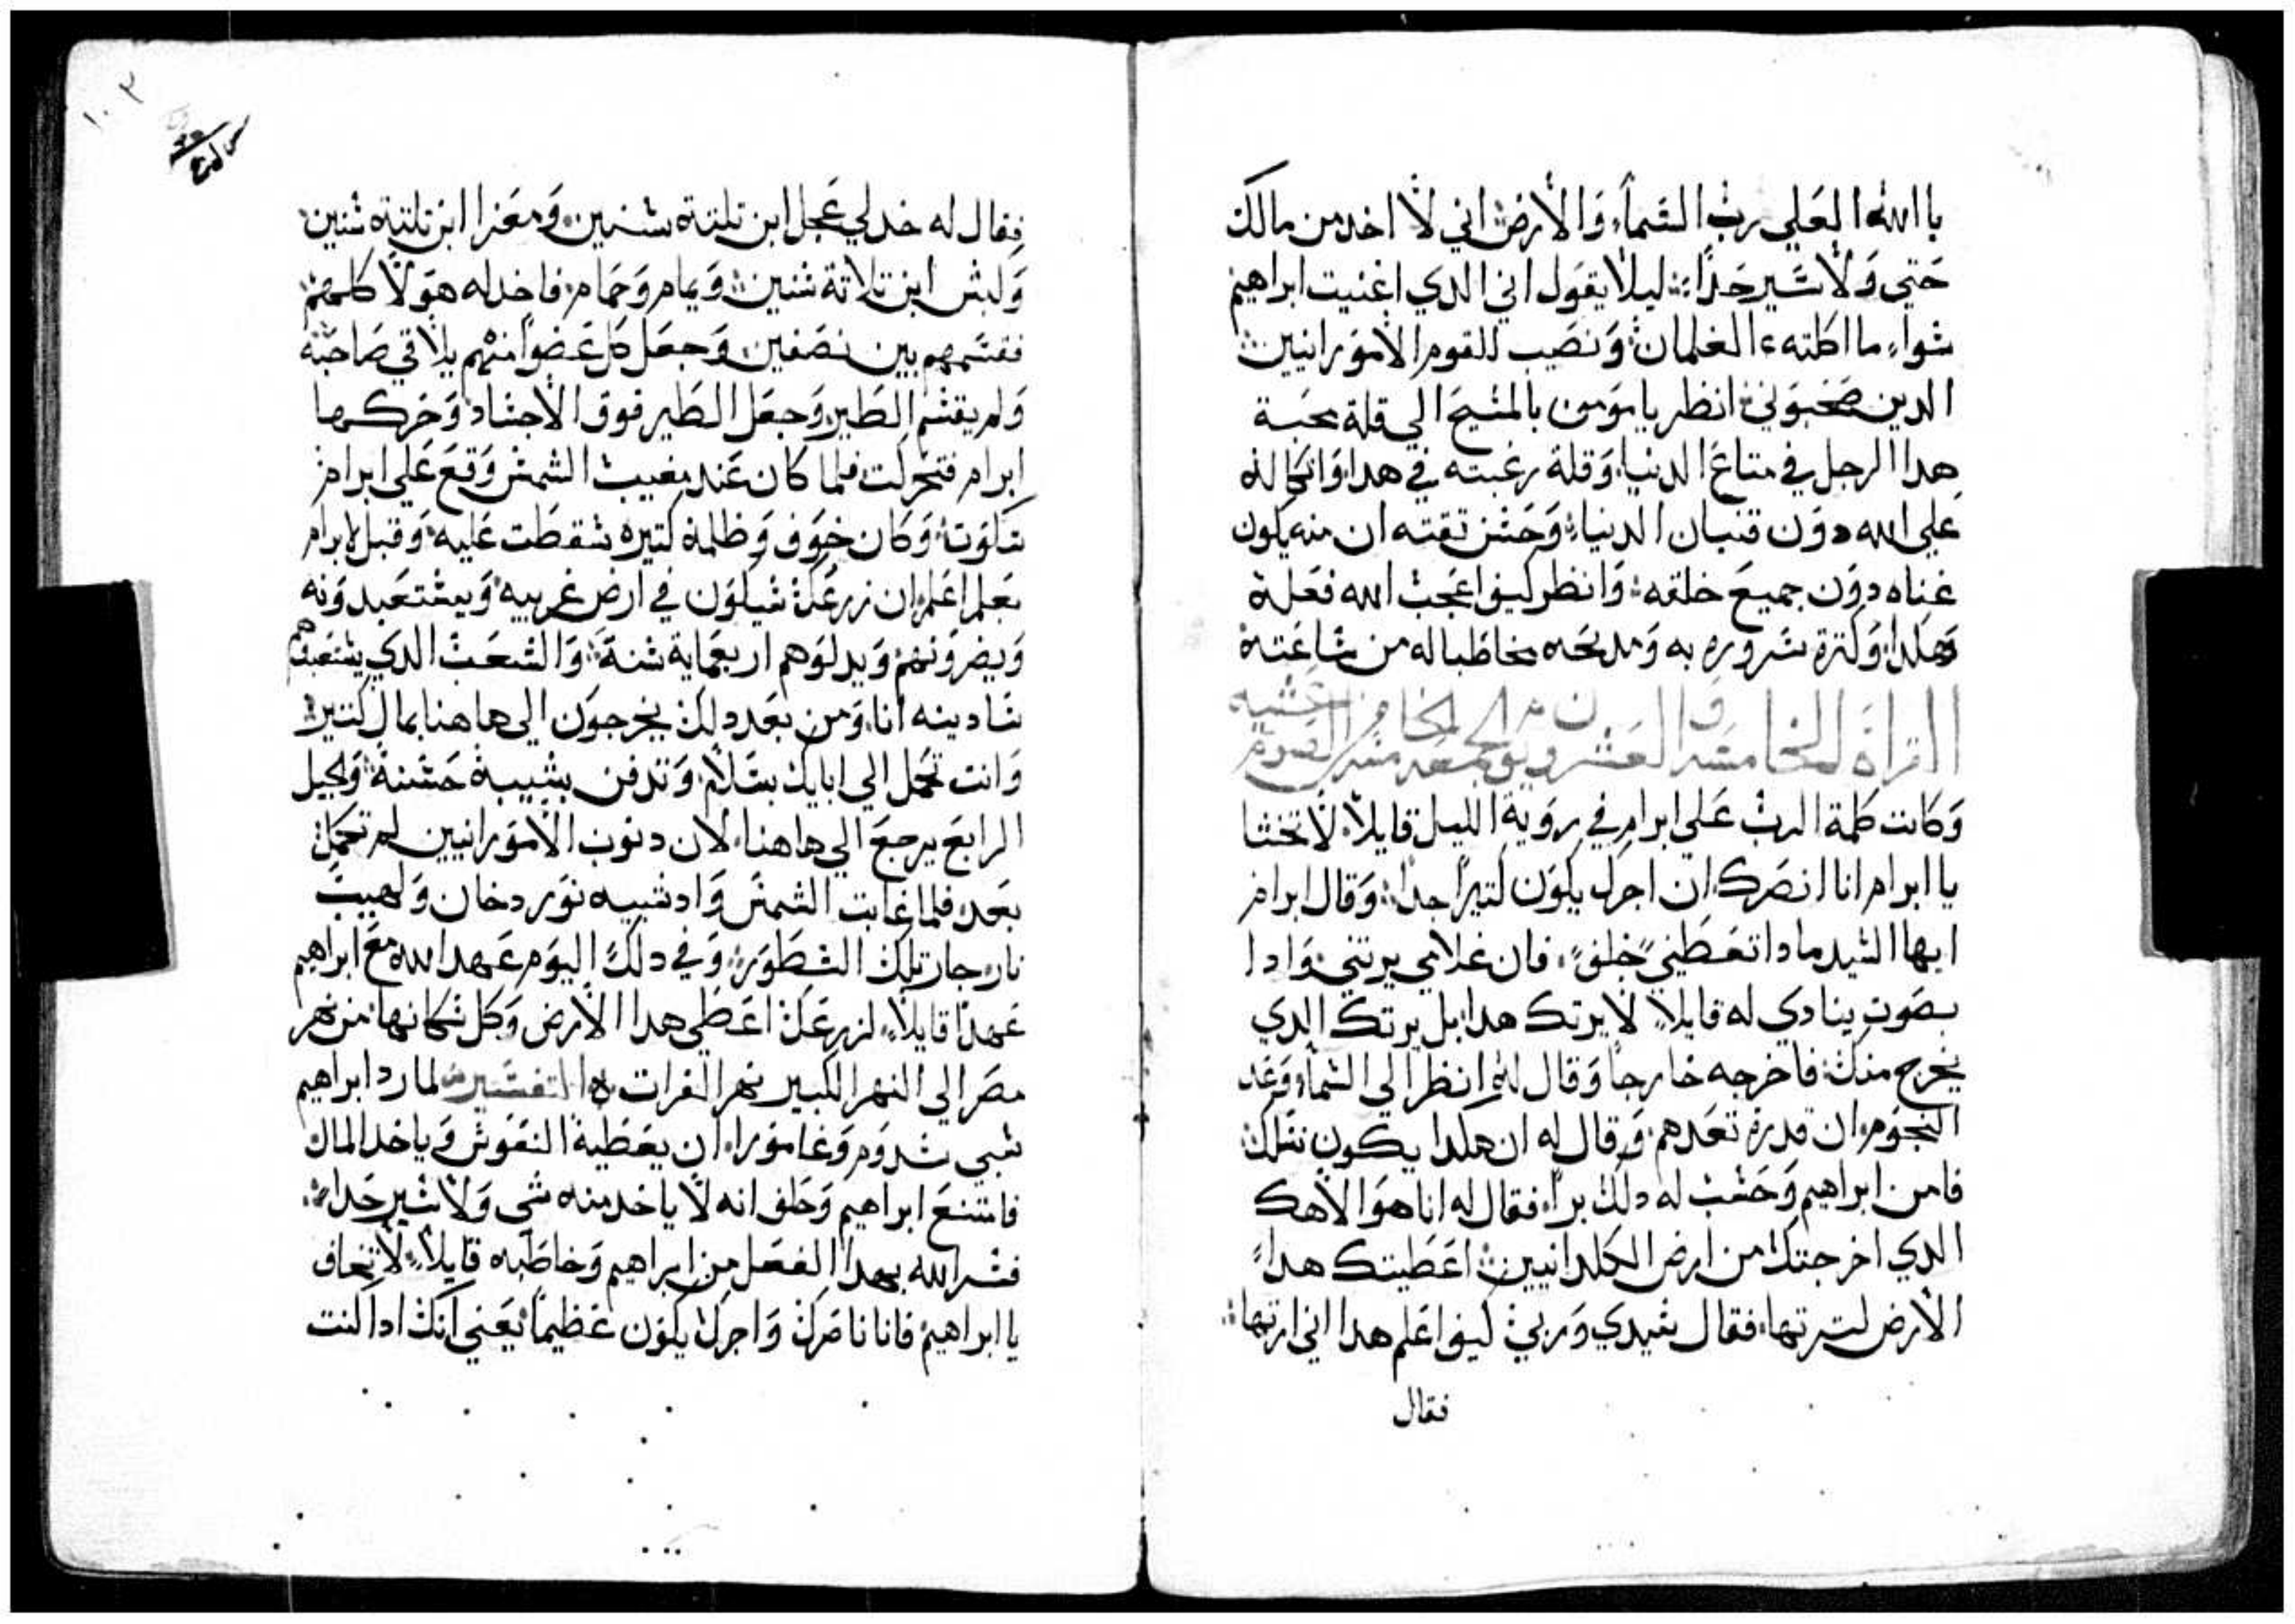 باالله العلي رب السماء والارض اني لا اخد من مالك
حتي ولا سير حدا ليلا يقول اني الدي اغنيت ابراهيم
سواء ما اكلته الغلمان ونصيب للقوم الامورانيين
الدين صحبوني انظر يا مومن بالمسيح الي قلة محبة
هدا الرجل في متاع الدنيا وقلة رغبته في هدا واتكاله
علي الله دون قنيان الدنيا وحسن تقته ان منه يكون
غناه دون جميع خلقه وانظر كيف اعجب الله فعله
وهكدا وكترة سروره به ومديحه مخاطبا له من ساعته
القراة الخامسة والعشرون من الجمعة الخامسة من الصوم عشية
وكانت كلمة الرب علي ابرام في روية الليل قايلا لا تخشا
يا ابرام انا انصرك ان اجرك يكون كتيرا جدا وقال ابرام
ايها السيد مادا تعطيني خلف فان غلامي يرتني وادا
بصوت ينادي له قايلا لا يرتك هدا بل يرتك الدي
يخرج منك فاخرجه خارجا وقال له انظر الي السماء وعد
النجوم ان قدرة تعدهم وقال له ان هكدا يكون نسلك
فامن ابراهيم وحسب له دلك برا فقال له انا هو الاهك
الدي اخرجتك من ارض الكلدانيين اعطيتك هدا
الارض لترتها فقال سيدي وربي كيف اعلم هدا اني ارتها
فقال
١٠٣
فقال له خد لي عجل ابن تلتة سنين ومعزا ابن تلتة سنين
وكبش ابن تلاتة سنين ويمام وحمام فاخد له هولا كلهم
فقسمهم بين نصفين وجعل كل عضوا منهم يلاقي صاحبه
ولم يقسم الطير وجعل الطير فوق الاجساد وحركها
ابرام فتحركت فلما كان عند مغيب الشمس وقع علي ابرام
سكوت وكان خوف وظلمة كتيره سقطت عليه وقيل لابرام
بعلم اعلم ان زرعك سيكون في ارض غريبه ويستعبدونه
ويضرونهم ويدلوهم اربعماية سنة والشعب الدي يستعبدهم
سادينه انا ومن بعد دلك يخرجون الي هاهنا بمال كتير
وانت تحمل الي ابايك بسلام وتدفن بشيبة حسنة ولجيل
الرابع يرجع الي هاهنا لان دنوب الامورانيين لم تكمل
بعد فلما غابت الشمس وادا شبيه نور دخان ولهيب
نار جاز تلك الشطور وفي دلك اليوم عهد الله مع ابراهيم
عهدا قايلا لزرعك اعطي هدا الارض وكل سكانها من نهر
مصر الي النهر الكبير نهر الفرات التفسير لما رد ابراهيم
سبي سدوم وغامورا ان يعطيه النفوس وياخد المال
فامتنع ابراهيم وحلف انه لا ياخد منه شي ولا سير حدا
فسر الله بهدا الفعل من ابراهيم وخاطبه قايلا لا تخاف
يا ابراهيم فانا ناصرك واجرك يكون عظيما يعني انك ادا كنت